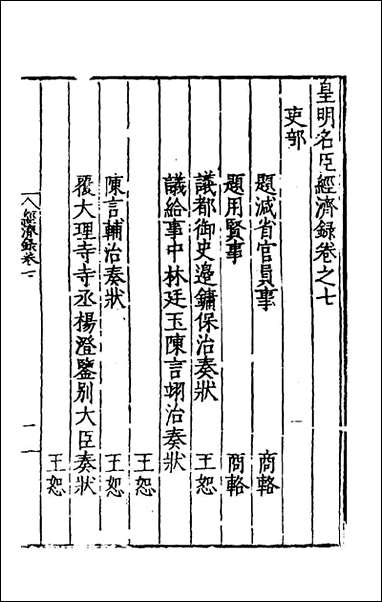 皇明名臣經濟錄卷之七
吏部
題減省官員事 商輅
題用賢事 商輅
議都御史邊鏞保治奏狀 王恕
議給事中林廷玉陳言翊治奏狀
王恕
陳言輔治奏狀 王恕
覆大理寺寺丞楊澄鑒别大臣奏狀
王恕
經濟錄卷七